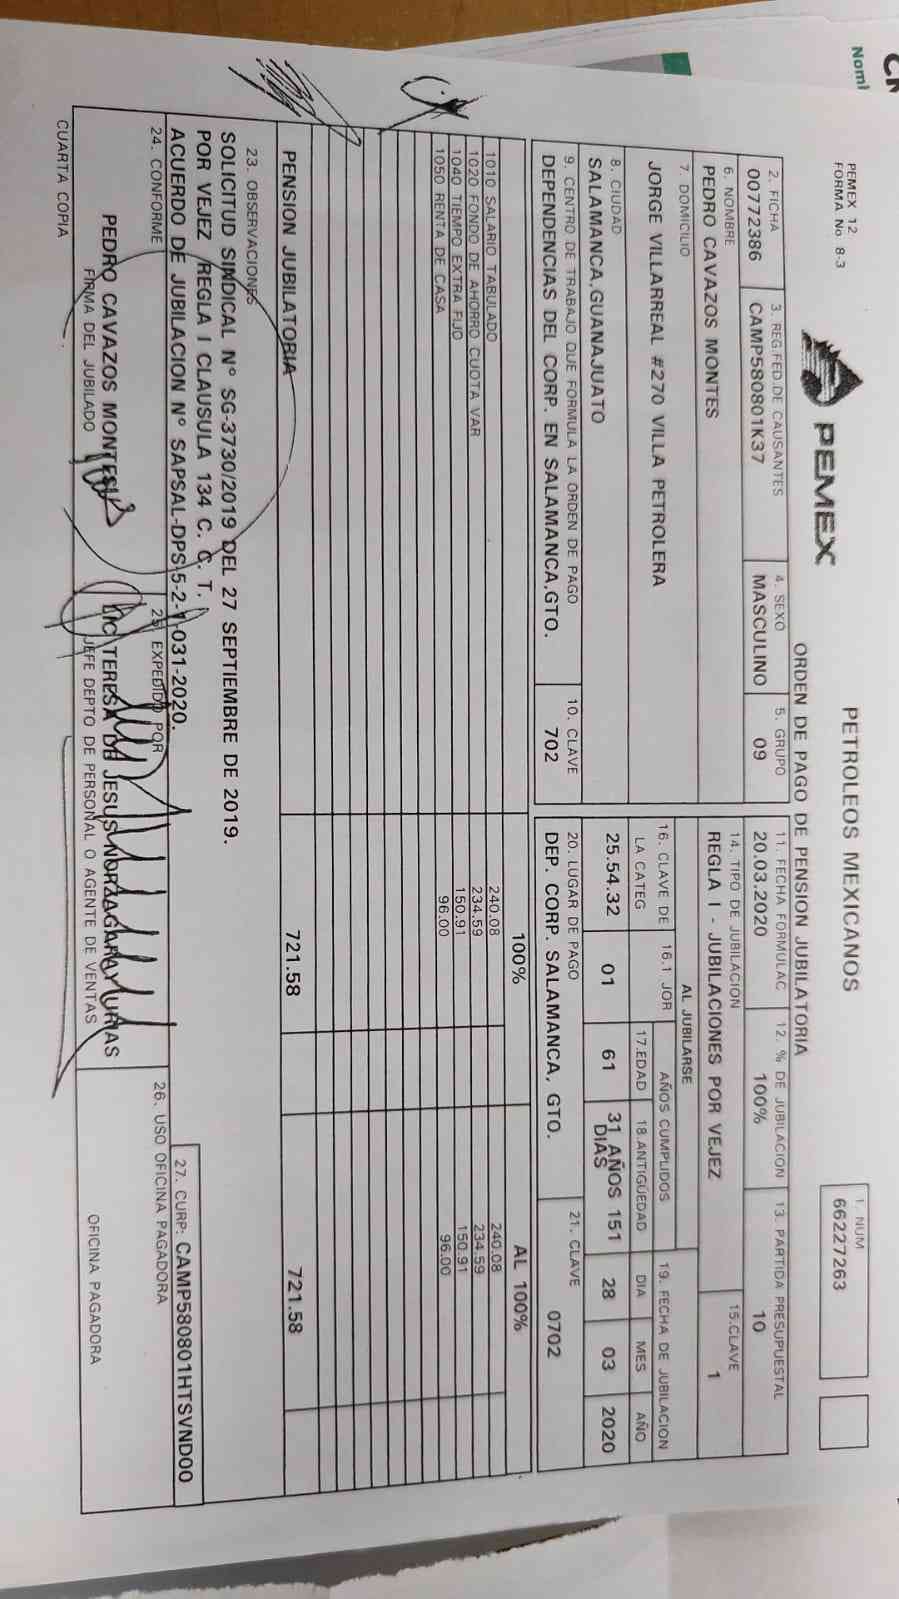 PEMEX 12
FORMA No 8-3
PEMEX
PETROLEOS MEXICANOS
ORDEN DE PAGO DE PENSION JUBILATORIA
1. NUM
66227263
2. FICHA
00772386
3. REG.FED.DE CAUSANTES
CAMP580801K37
4. SEXO
MASCULINO
5. GRUPO
09
6. NOMBRE
PEDRO CAVAZOS MONTES
7. DOMICILIO
JORGE VILLARREAL #270 VILLA PETROLERA
8. CIUDAD
SALAMANCA,GUANAJUATO
9. CENTRO DE TRABAJO QUE FORMULA LA ORDEN DE PAGO
DEPENDENCIAS DEL CORP. EN SALAMANCA,GTO.
10. CLAVE
702
11. FECHA FORMULAC
20.03.2020
12. % DE JUBILACION
100%
13. PARTIDA PRESUPUESTAL
10
14. TIPO DE JUBILACION
REGLA I - JUBILACIONES POR VEJEZ
15.CLAVE
1
AL JUBILARSE
16. CLAVE DE
LA CATEG
25.54.32
16.1 JOR
01
AÑOS CUMPLIDOS
17.EDAD
61
18.ANTIGÜEDAD
31 AÑOS 151
DIAS
19. FECHA DE JUBILACION
DIA MES AÑO
28 03 2020
20. LUGAR DE PAGO
DEP. CORP. SALAMANCA, GTO.
21. CLAVE
0702
100% AL 100%
1010 SALARIO TABULADO 240.08 240.08
1020 FONDO DE AHORRO CUOTA VAR 234.59 234.59
1040 TIEMPO EXTRA FIJO 150.91 150.91
1050 RENTA DE CASA 96.00 96.00
PENSION JUBILATORIA 721.58 721.58
23. OBSERVACIONES
SOLICITUD SINDICAL N° SG-3730/2019 DEL 27 SEPTIEMBRE DE 2019.
POR VEJEZ REGLA I CLAUSULA 134 C. C. T.
ACUERDO DE JUBILACION N° SAPSAL-DPS-5-2-1-031-2020.
27. CURP: CAMP580801HTSVND00
24. CONFORME
PEDRO CAVAZOS MONTES
FIRMA DEL JUBILADO
25. EXPEDIDO POR
LIC TERESA DE JESUS NORZAGARAY URIAS
JEFE DEPTO DE PERSONAL O AGENTE DE VENTAS
26. USO OFICINA PAGADORA
OFICINA PAGADORA
CUARTA COPIA